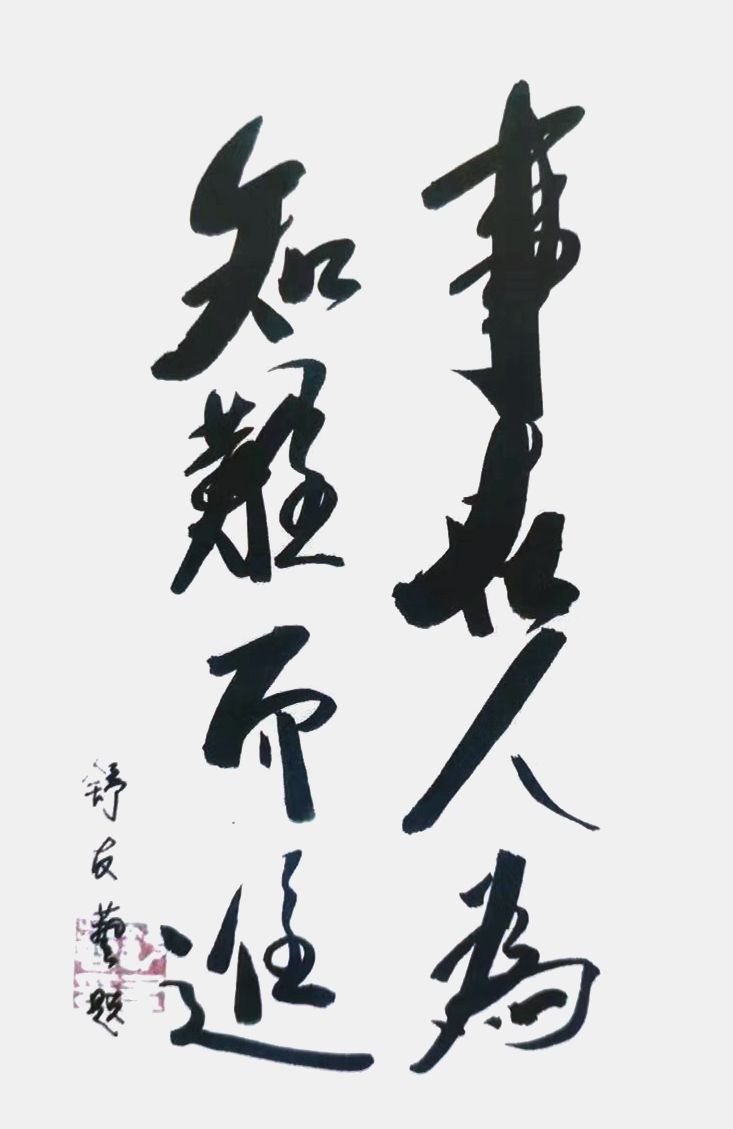 事在人為
知難而進
舒友藝題